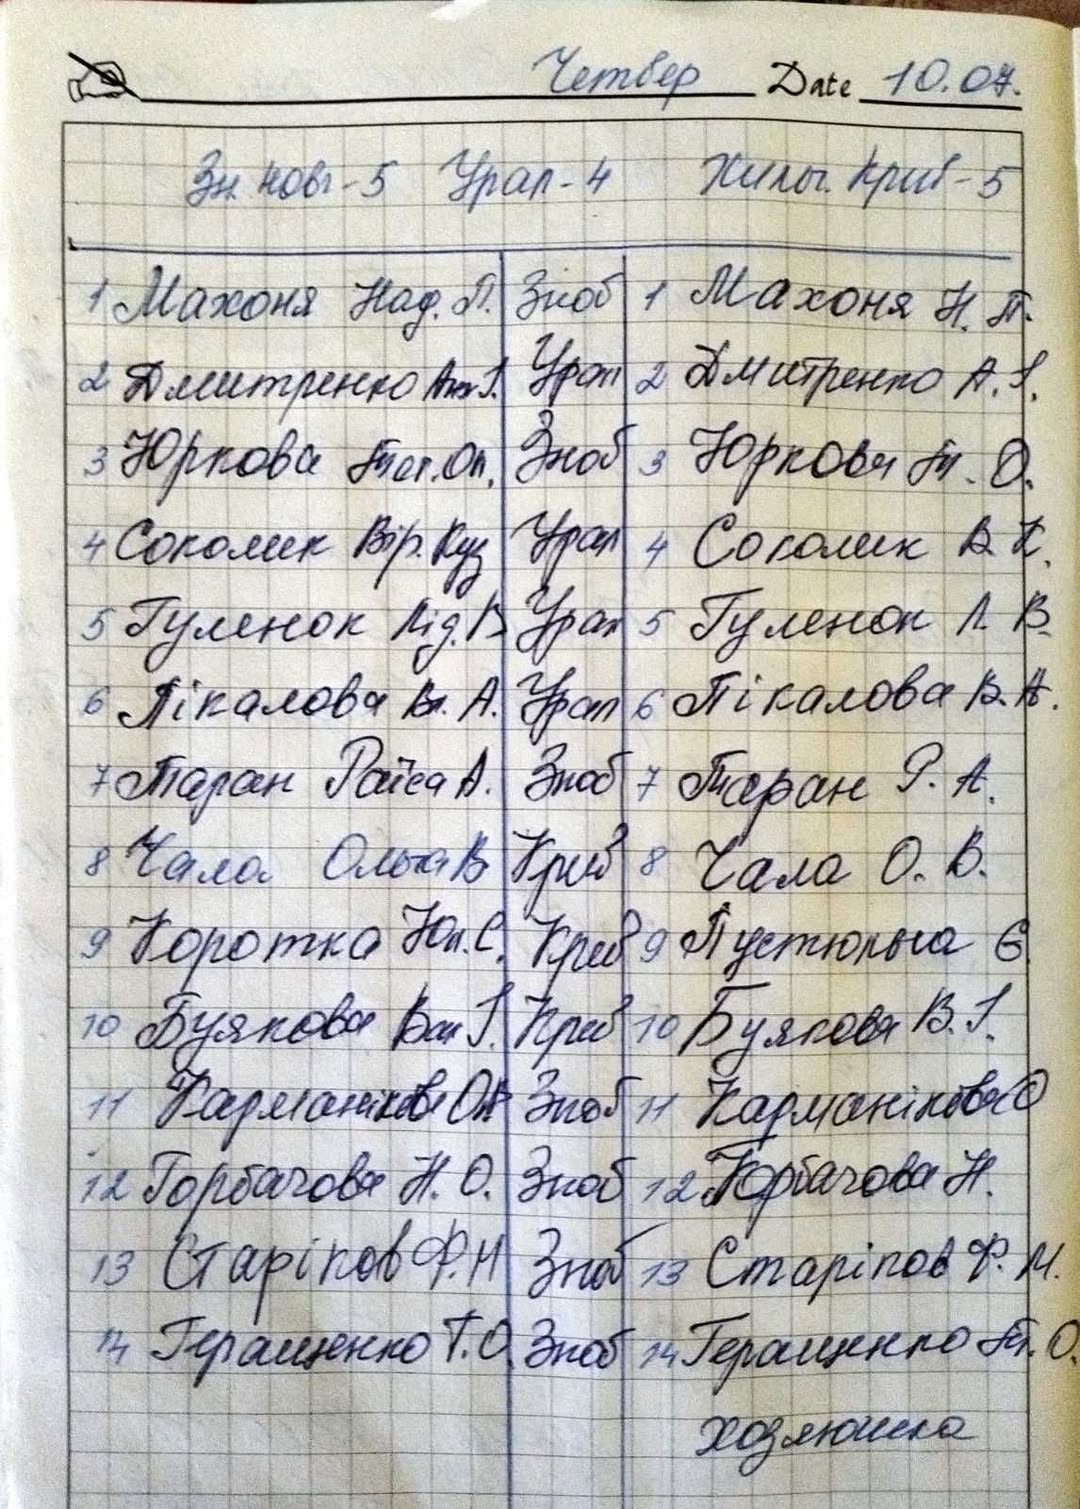 Четвер Date 10.07.
Зн. Нов - 5 Урал - 4 Хильч. Криб - 5
1 Махоня Над. П. Зноб 1 Махоня Н. П.
2 Дмитренко І. Урал 2 Дмитренко А. І.
3 Юркова Ол. Зноб 3 Юркова Т. О.
4 Соколик Вір. Куз Урал 4 Соколик В. К.
5 Гуленок Лід. В Урал 5 Гуленок Л. В.
6 Пікалова Вл. А. Урал 6 Пікалова В. А.
7 Таран Раїса А. Зноб 7 Таран Р. А.
8 Чала Ольга В Криб 8 Чала О. В.
9 Коротка Юл. С. Криб 9 Пустюльга Є
10 Буякова Вал І. Криб 10 Буякова В. І.
11 Карманікова Зноб 11 Карманікова О
12 Горбачова Н. О. Зноб 12 Горбачова Н.
13 Старіков Ф. М Зноб 13 Старіков Ф. М.
14 Геращенко Т. О. Зноб 14 Геращенко Т. О.
хозяюшка